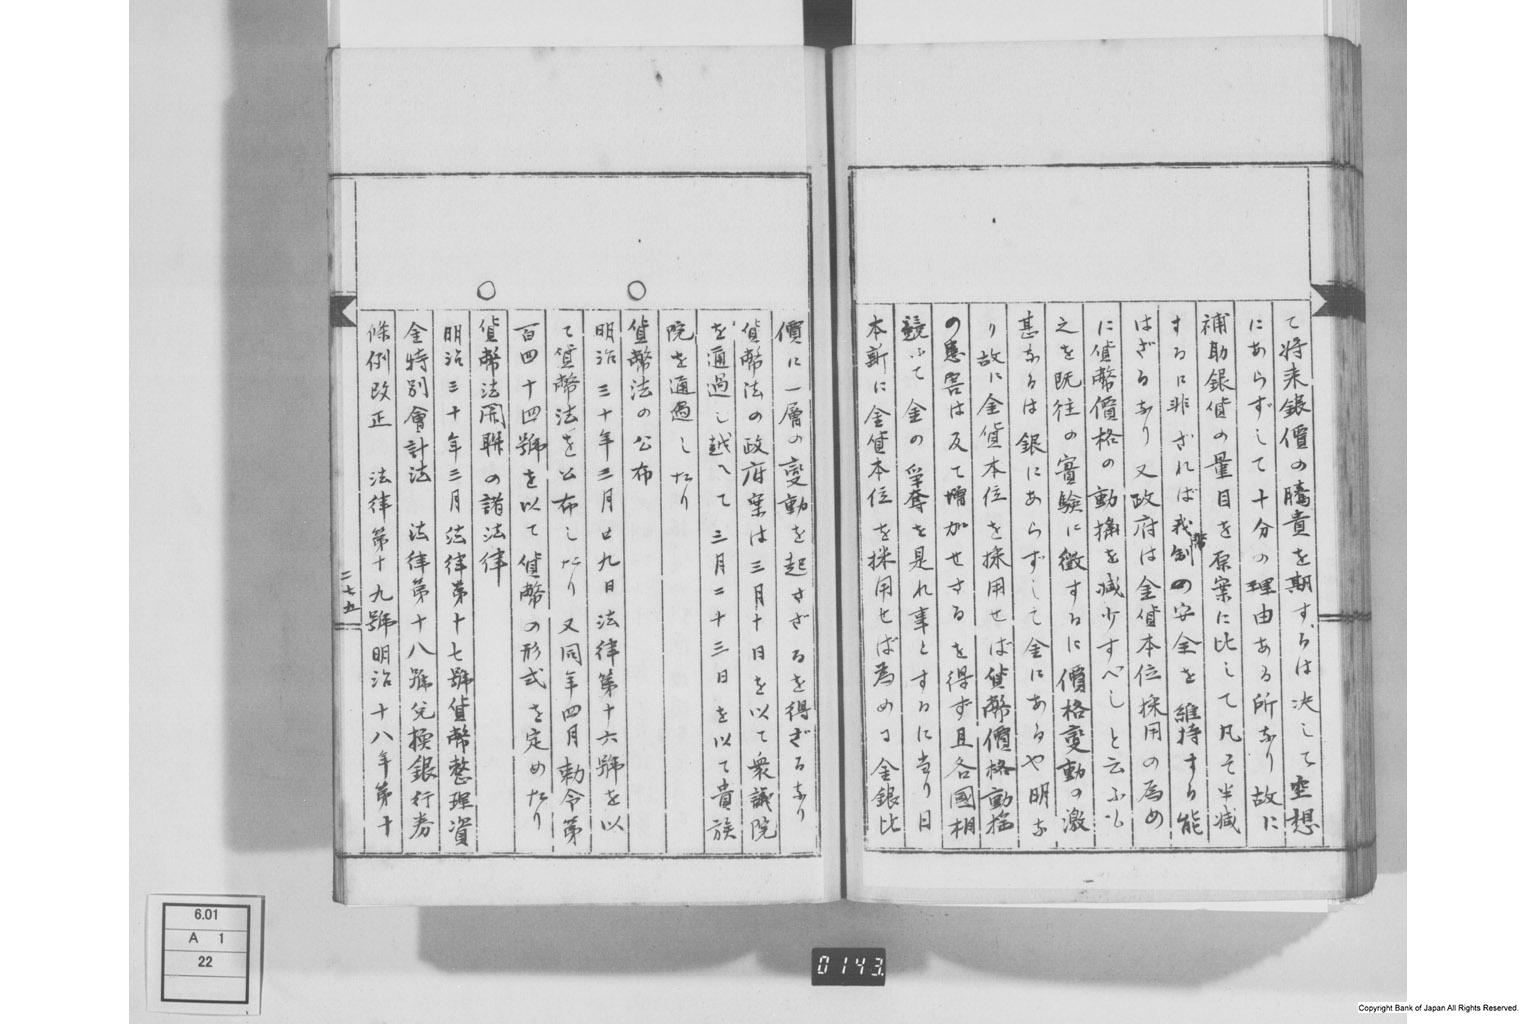 て将来銀價の騰貴を期するは决して空想
にあらずして十分の理由ある所なり故に
補助銀貨の量目を原案に比して凡そ半减
するに非ざれば我幣制の安全を維持する能
はざるなり又政府は金貨本位採用の為め
に貨幣價格の動搖を减少すべしと云ふも
之を既往の實驗に徴するに價格變動の激
甚なるは銀にあらずして金にあるや明な
り故に金貨本位を採用せば貨幣價格動搖
の患害は反て増加せさるを得ず且各國相
競ふて金の爭奪を是れ事とするに当り日
本新に金貨本位を採用せば為めに金銀比
價に一層の變動を起さざるを得ざるなり
貨幣法の政府案は三月十日を以て衆議院
を通過し越へて三月二十三日を以て貴族
院を通過したり
○
貨幣法の公布
明治三十年三月廿九日法律第十六號を以
て貨幣法を公布したり又同年四月勅令第
百四十四號を以て貨幣の形式を定めたり
○
貨幣法関聨の諸法律
明治三十年三月法律第十七號貨幣整理資
金特別會計法 法律第十八號兌換銀行券
條例改正 法律第十九號明治十八年第十
二七五
6.01
A 1
22
0143
Copyright Bank of Japan All Rights Reserved.